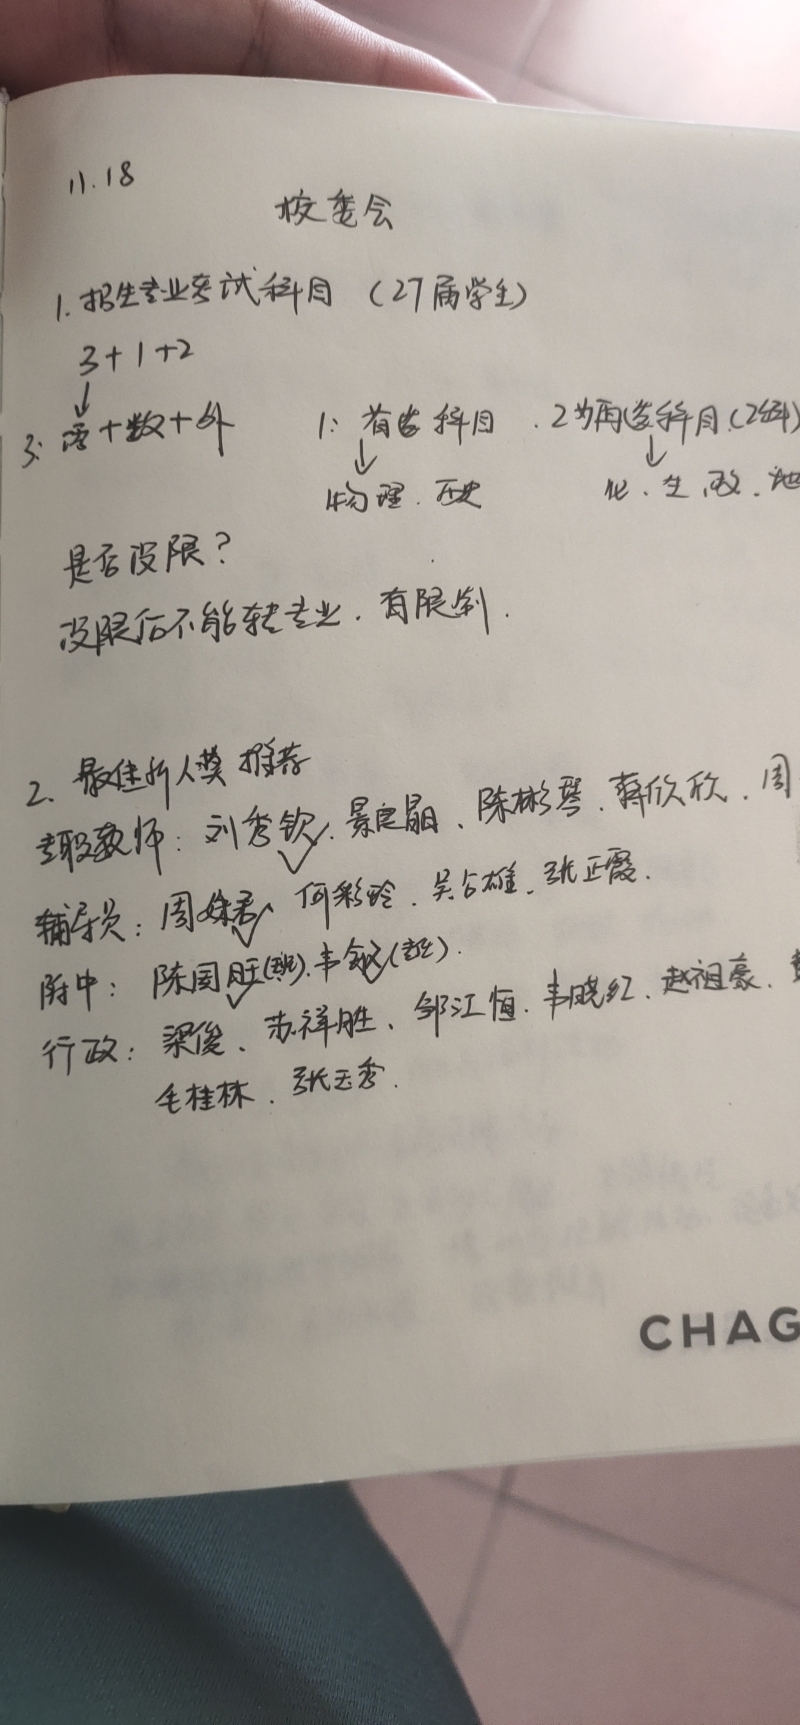 11.18
校委会
1. 招生专业考试科目（27届学生）
3+1+2
↓
3: 语+数+外  1: 首选科目. 2为再选科目(2科)
↓ ↓
物理. 历史  化、生、政、地
是否设限？
设限后不能转专业. 有限制.
2. 最佳新人奖推荐
专职教师: 刘秀钦、晶、陈彬琴、蒋欣欣、周
辅导员: 周姝君、何彩玲、吴占雄、张正霞.
附中: 陈国旺、韦
行政: 梁俊、苏祥胜、邹江恒、韦晓红、赵祖豪、
毛桂林、张玉秀.
CHAG